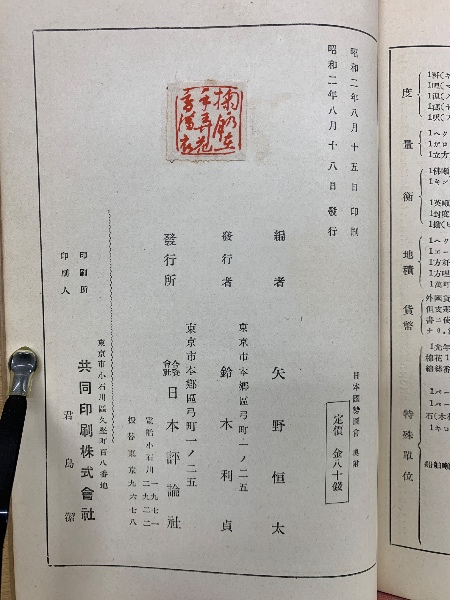 昭和二年八月十五日印刷
昭和二年八月十八日發行
日本國勢圖會 奧附
定價 金八十錢
編者 矢野恒太
東京市本鄉區弓町一ノ二五
發行者 鈴木利貞
東京市本鄉區弓町一ノ二五
發行所 合資會社 日本評論社
電話小石川 一九七一 二九二二
振替東京九六七八
東京市小石川區久堅町百八番地
印刷所 共同印刷株式會社
印刷人 君島潔
度
量
衡
地積
貨幣
特殊單位